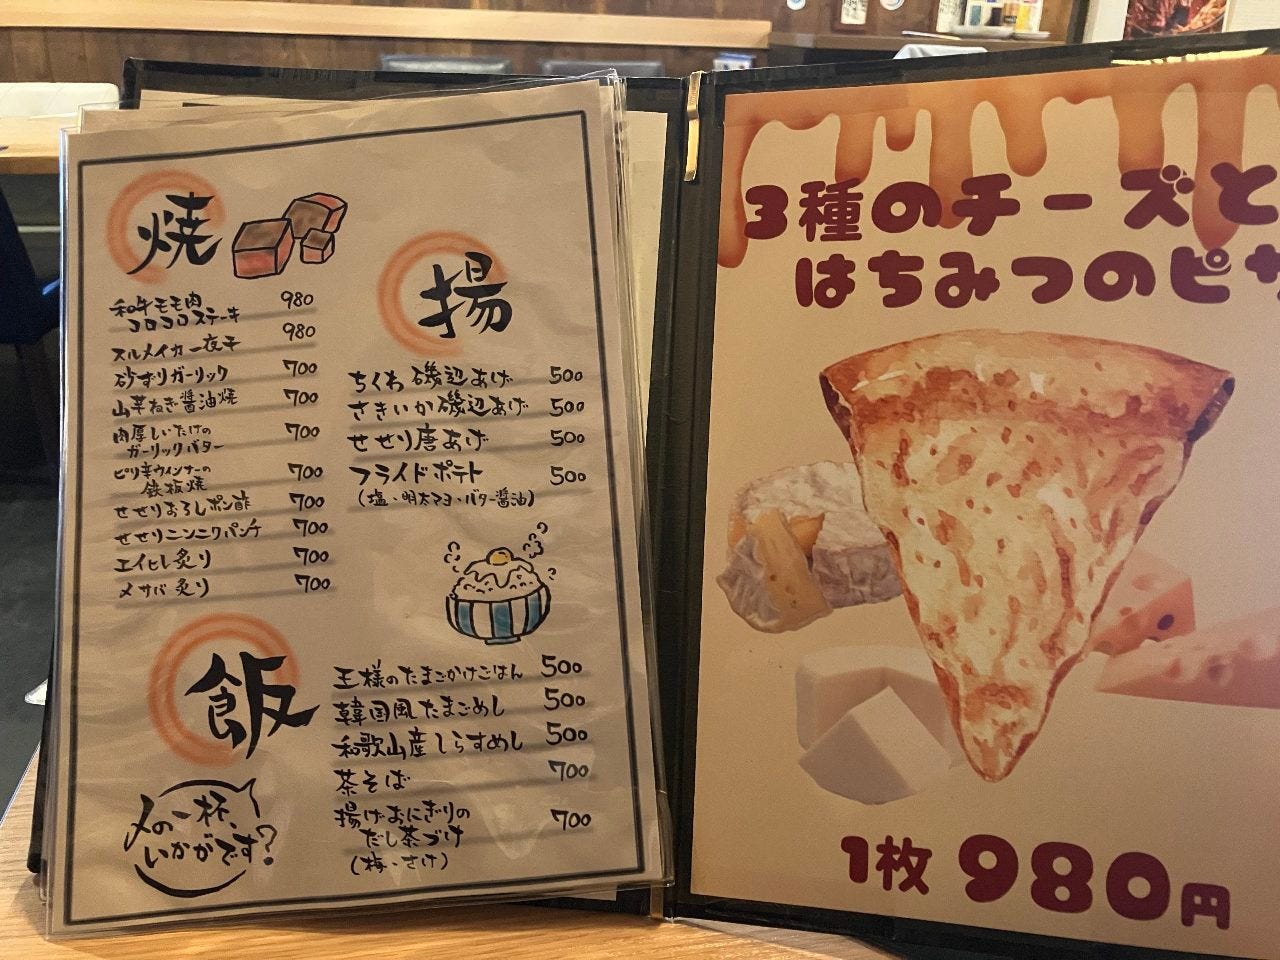 焼
和牛モモ肉
コロコロステーキ 980
スルメイカ一夜干 980
砂ずりガーリック 700
山芋ねぎ醤油焼 700
肉厚しいたけの
ガーリックバター 700
ピリ辛ウインナーの
鉄板焼 700
せせりおろしポン酢 700
せせりニンニクパンチ 700
エイヒレ炙り 700
〆サバ炙り 700
揚
ちくわ磯辺あげ 500
さきいか磯辺あげ 500
せせり唐あげ 500
フライドポテト 500
(塩、明太マヨ、バター醤油)
飯
王様のたまごかけごはん 500
韓国風たまごめし 500
和歌山産しらすめし 500
茶そば 700
揚げおにぎりの
だし茶づけ 700
(梅、さけ)
〆の一杯、
いかがです?
3種のチーズと
はちみつのピザ
1枚 980円